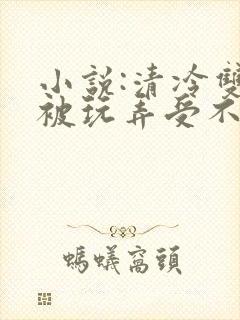 小說:清冷雙
被玩弄受不
螞蟻窩頭